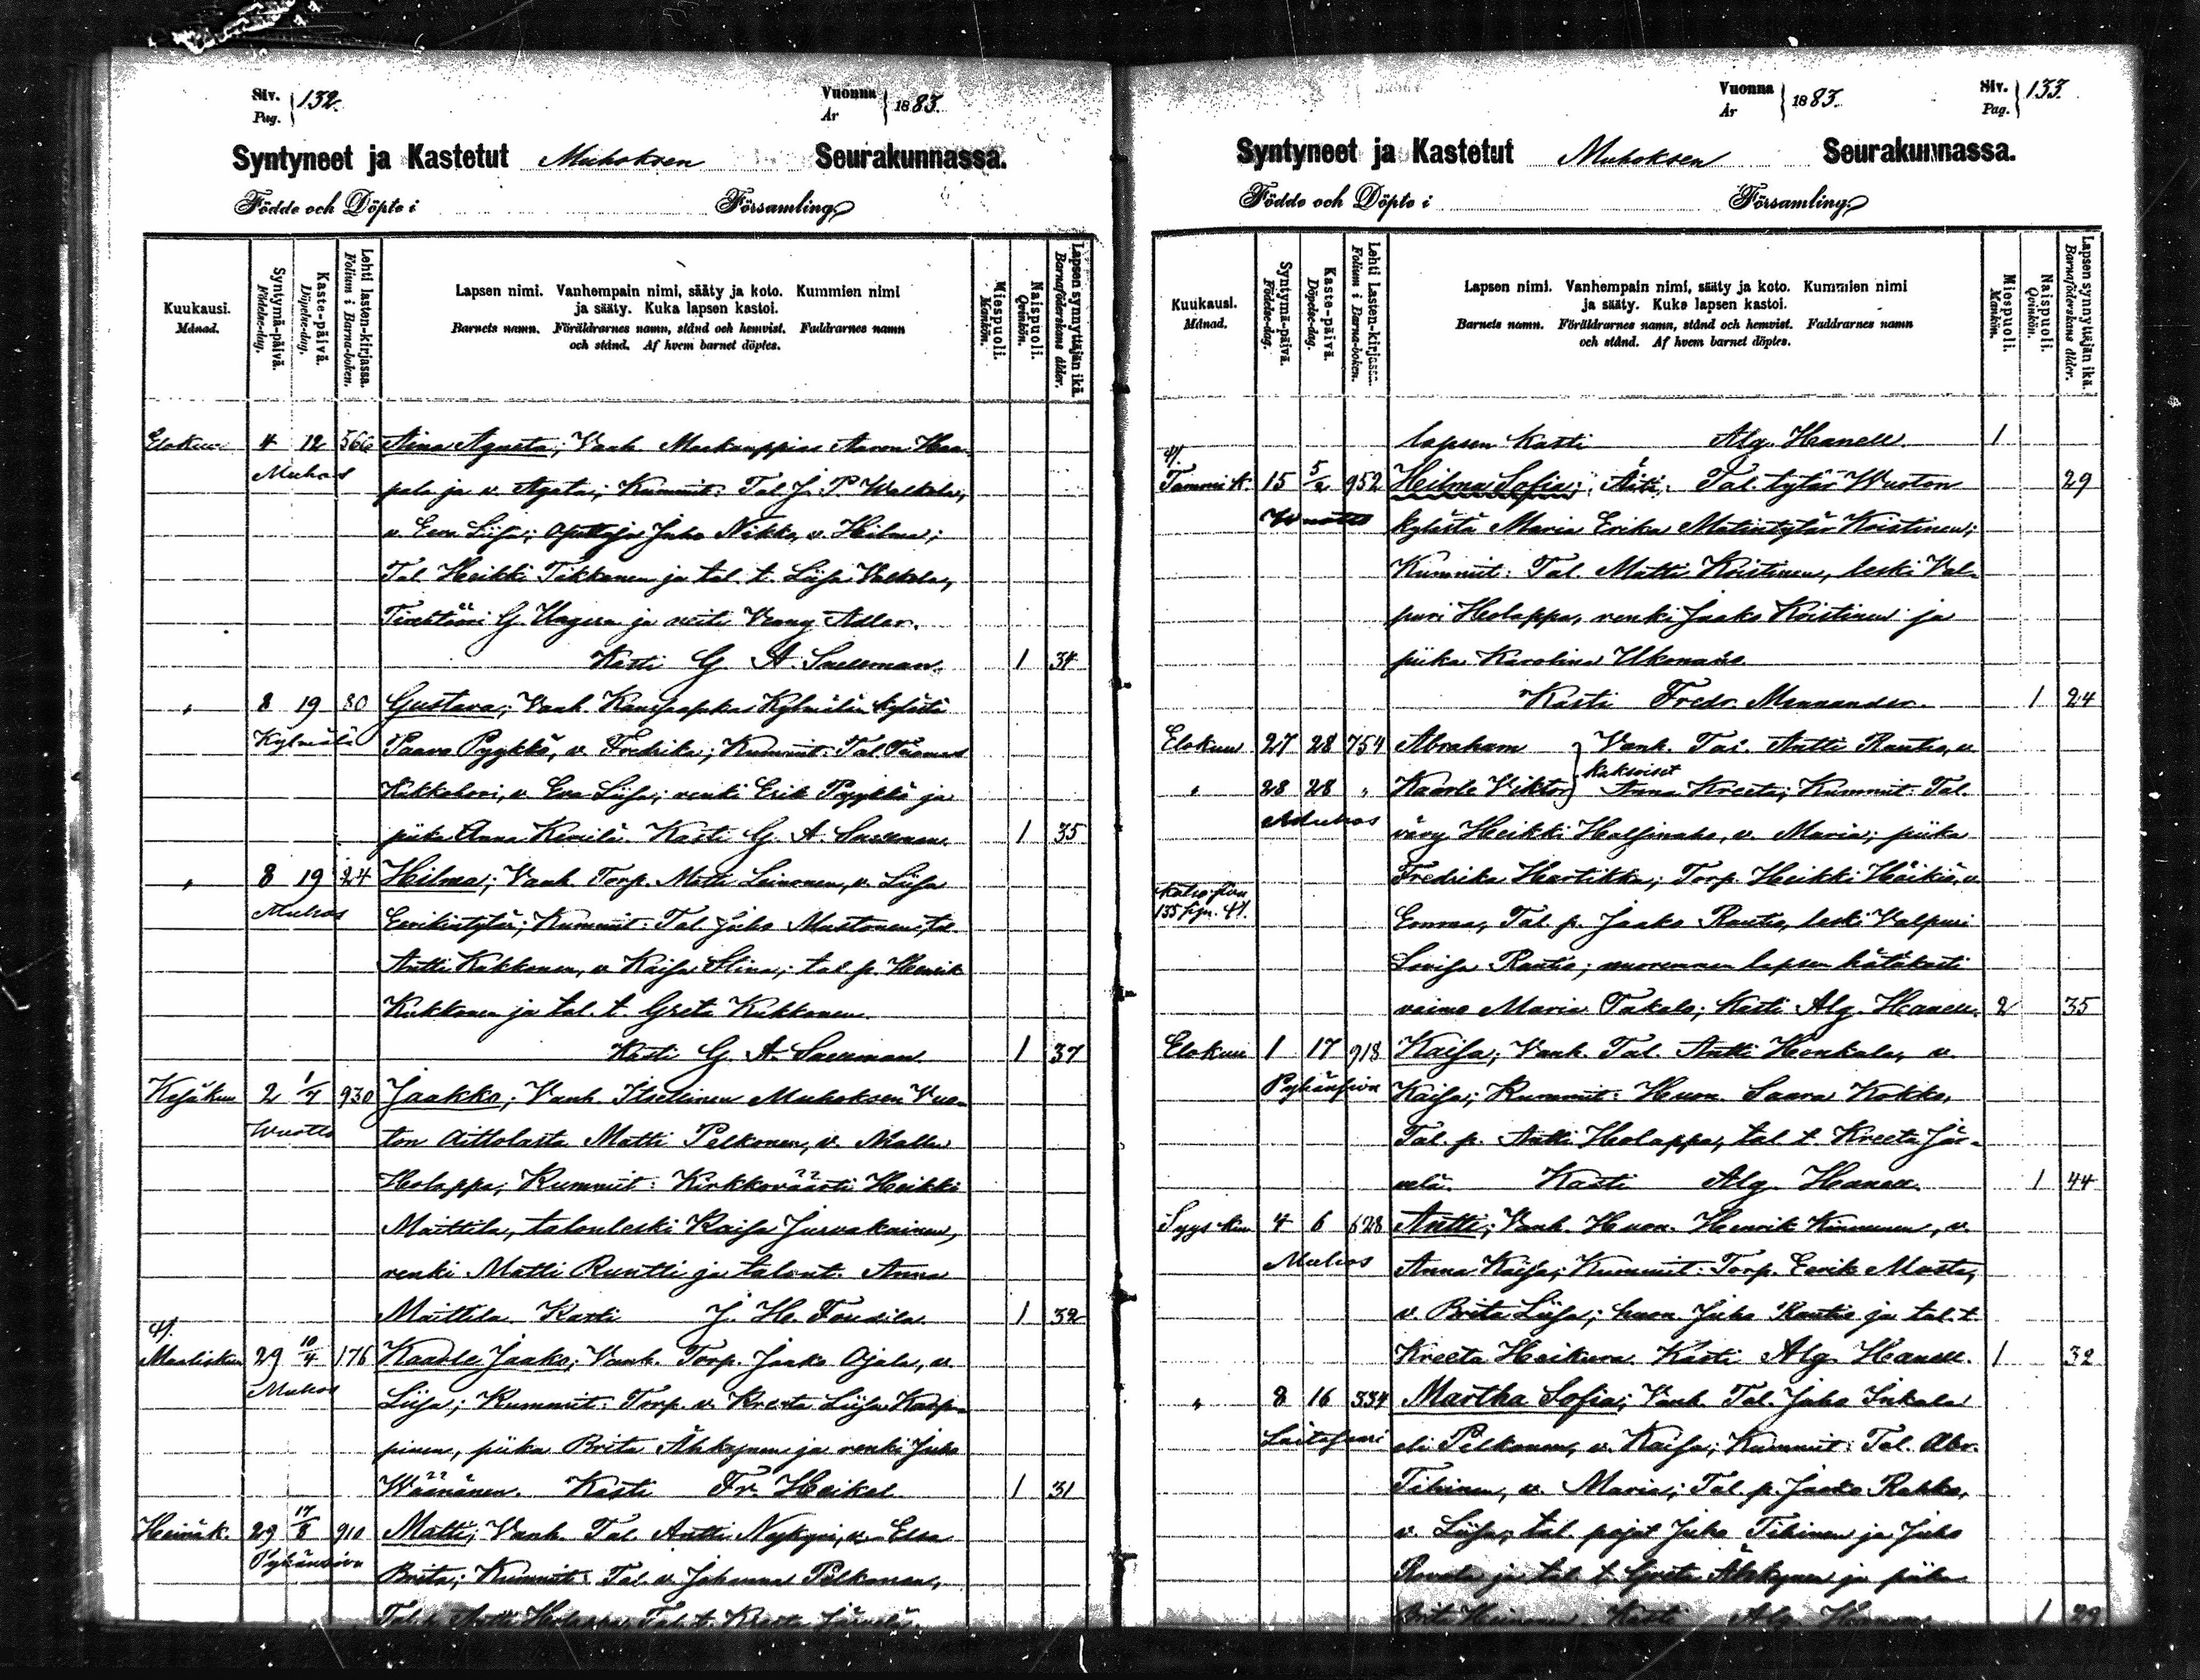 Siv. Pag. 132.
Vuonna År 1883.
Syntyneet ja Kastetut Muhoksen Seurakunnassa.
Födde och Döpte i Församling
Kuukausi. Månad.
Syntymä-päivä. Födelse-dag.
Kaste-päivä. Döpelse-dag.
Lehti lasten-kirjassa. Folium i Barna-boken.
Lapsen nimi. Vanhempain nimi, sääty ja koto. Kummien nimi
ja sääty. Kuka lapsen kastoi.
Barnets namn. Föräldrarnes namn, stånd och hemvist. Faddrarnes namn
och stånd. Af hvem barnet döptes.
Miespuoli. Mankön.
Naispuoli. Qvinkön.
Lapsen synnyttäjän ikä. Barnaföderskans ålder.
Elokuu 4 12 566 Aina Agata; Vanh. Maakauppias Aaron Haa-
Muhos pala ja v. Agata; Kummit: Tal. J. P. Walkola,
v. Eeva Liisa; Juho Nikka, v. Hilma;
Tal. Heikki Tikkanen ja tal. t. Liisa Valkola,
G. Ungern ja neiti Adler.
Kasti G. A. Snellman. 1 34
„ 8 19 80 Gustava; Vanh. Kylmälän kylästä
Kylmälä Paavo Pyykkö, v. Fredrika; Kummit: Tal. Tuomas
v. Eva Liisa; renki Erik Pyykkö ja
piika Anna Kivelä. Kasti G. A. Snellman. 1 35
„ 8 19 24 Hilma; Vanh. Torp. Matti Leinonen, v. Liisa
Muhos Eerikintytär; Kummit: Tal. Juho Mustonen, tal.
Antti Kukkonen, v. Kaisa Stina; tal. p. Henrik
Kukkonen ja tal. t. Greta Kukkonen.
Kasti G. A. Snellman. 1 37
Kesäkuu 2 1/7 930 Jaakko; Vanh. Itsellinen Muhoksen Vuo-
Wuotto ton Aittolasta Matti Pelkonen, v. Mallu
Holappa; Kummit: Kirkkoväärti Heikki
Mättilä, talonleski Kaisa Jurvakainen,
renki Matti Runtti ja talont. Anna
Mättilä. Kasti J. H. Toudila. 1 32
Maaliskuu 29 10/4 176 Kaarle Jaako; Vanh. Torp. Jaako Ojala, v.
Muhos Liisa; Kummit: Torp. v. Kreeta Liisa Karp-
pinen, piika Brita Ähkynen ja renki Juho
Wäänänen. Kasti Fr. Heikel 1 31
Heinäk. 29 17/8 910 Matti; Vanh. Tal. Antti Nykyri, v. Elsa
Pyhänsivu Brita; Kummit: Tal. v. Johanna Pelkonen,
Tal. p. Antti Holappa, Tal. t. Kreeta Järvelä.
Vuonna År 1883.
Siv. Pag. 133.
Syntyneet ja Kastetut Muhoksen Seurakunnassa.
Födde och Döpte i Församling
Kuukausi. Månad.
Syntymä-päivä. Födelse-dag.
Kaste-päivä. Döpelse-dag.
Lehti Lasten-kirjassa. Folium i Barna-boken.
Lapsen nimi. Vanhempain nimi, sääty ja koto. Kummien nimi
ja sääty. Kuka lapsen kastoi.
Barnets namn. Föräldrarnes namn, stånd och hemvist. Faddrarnes namn
och stånd. Af hvem barnet döptes.
Miespuoli. Mankön.
Naispuoli. Qvinkön.
Lapsen synnyttäjän ikä. Barnaföderskans ålder.
lapsen kasti Alg. Hanell. 1
Tammik. 15 5/2 952 Heilma Sofia; Äiti: Tal. tytär Wuoton 29
Wuotto kylästä Maria Erika Matintytär Koistinen;
Kummit: Tal. Matti Koistinen, leski Val-
puri Holappa, renki Jaako Koistinen ja
piika Karolina Ukonaho
Kasti Fredr. Mennander. 1 24
Elokuu 27 28 754 Abraham Vanh. Tal. Antti Rautio, v.
kaksoiset
„ 28 28 „ Kaarle Viktor Anna Kreeta; Kummit: Tal.
Muhos vävy Heikki Halsinaho, v. Maria; piika
Fredrika Hartikka; Torp. Heikki Häikiö, v.
Emma, Tal. p. Jaako Rautio, leski Valpuri
Loviisa Rautio; nuoremman lapsen hätäkasti
vaimo Maria Takalo; Kasti Alg. Hanell. 2 35
Elokuu 1 17 918 Kaisa; Vanh. Tal. Antti Honkala, v.
Pyhänsivu Kaisa; Kummit: Huon. Saara Kokko,
Tal. p. Antti Holappa, tal. t. Kreeta Jär-
velä. Kasti Alg. Hanell. 1 44
Syyskuu 4 6 628 Antti; Vanh. Huon. Henrik Kinnunen, v.
Muhos Anna Kaisa; Kummit: Torp. Eerik Musta,
v. Brita Liisa; huon. Juho Rautio ja tal. t.
Kreeta Heikura. Kasti Alg. Hanell. 1 32
„ 8 16 334 Martha Sofia; Vanh. Tal. Juho Inkala
Laitasaari eli Pelkonen, v. Kaisa; Kummit: Tal. Abr.
Tihinen, v. Maria; Tal. p. Jaako Rahko,
v. Liisa; tal. pojat Juho Tihinen ja Juho
Rovala ja tal. t. Greta Ähkynen ja piika
Brita Heinonen. Kasti Alg. Hanell. 1 29